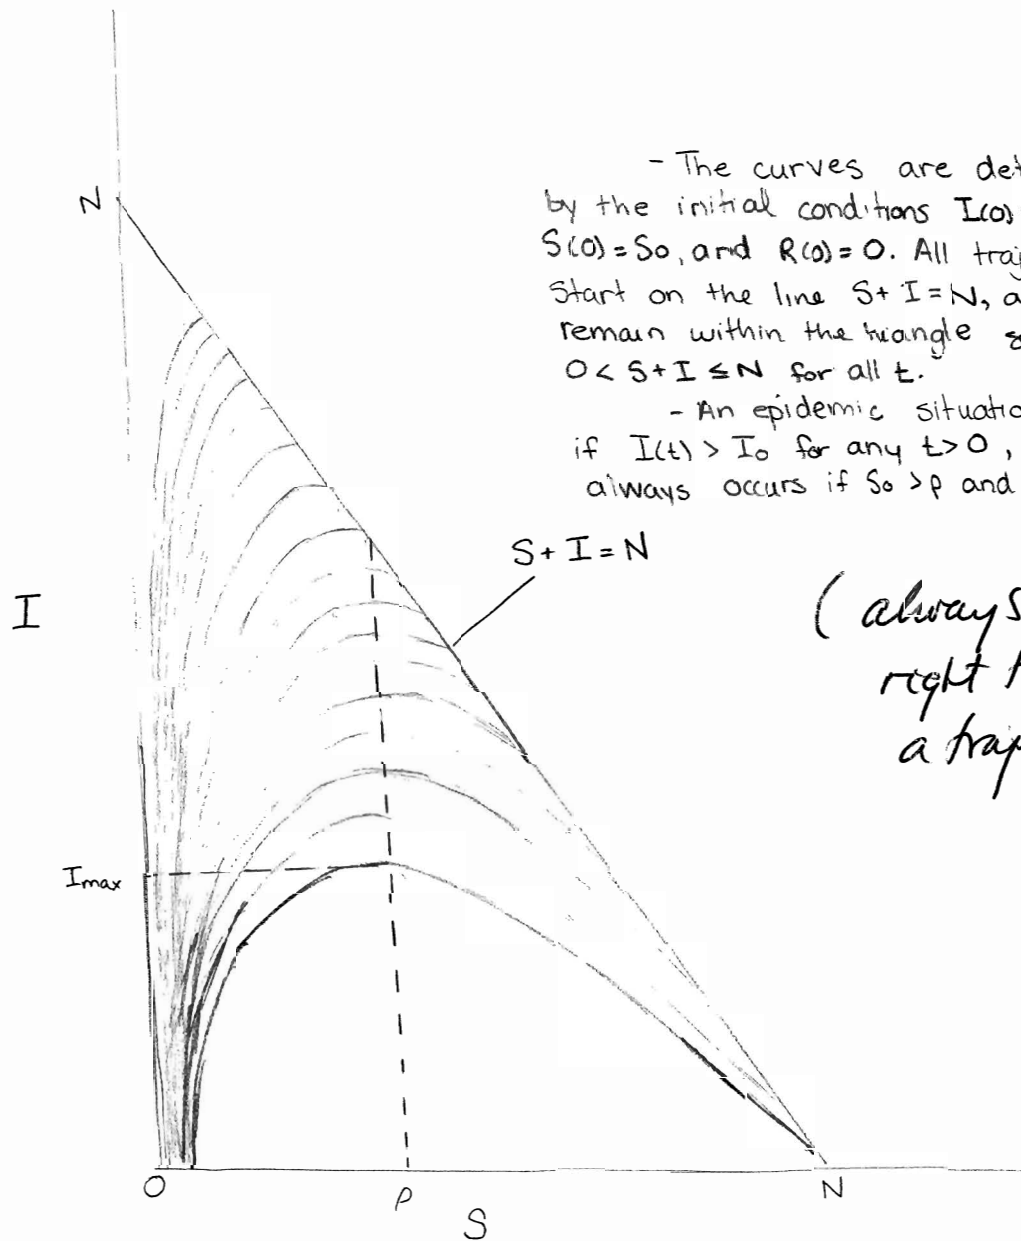 - The curves are det
by the initial conditions I(0)
S(0) = So, and R(0) = 0. All traj
Start on the line S + I = N, a
remain within the triangle
0 < S + I ≤ N for all t.
- An epidemic situatio
if I(t) > Io for any t > 0,
always occurs if So > ρ and
N
S + I = N
I
(always
right
a traj
Imax
O
ρ
N
S